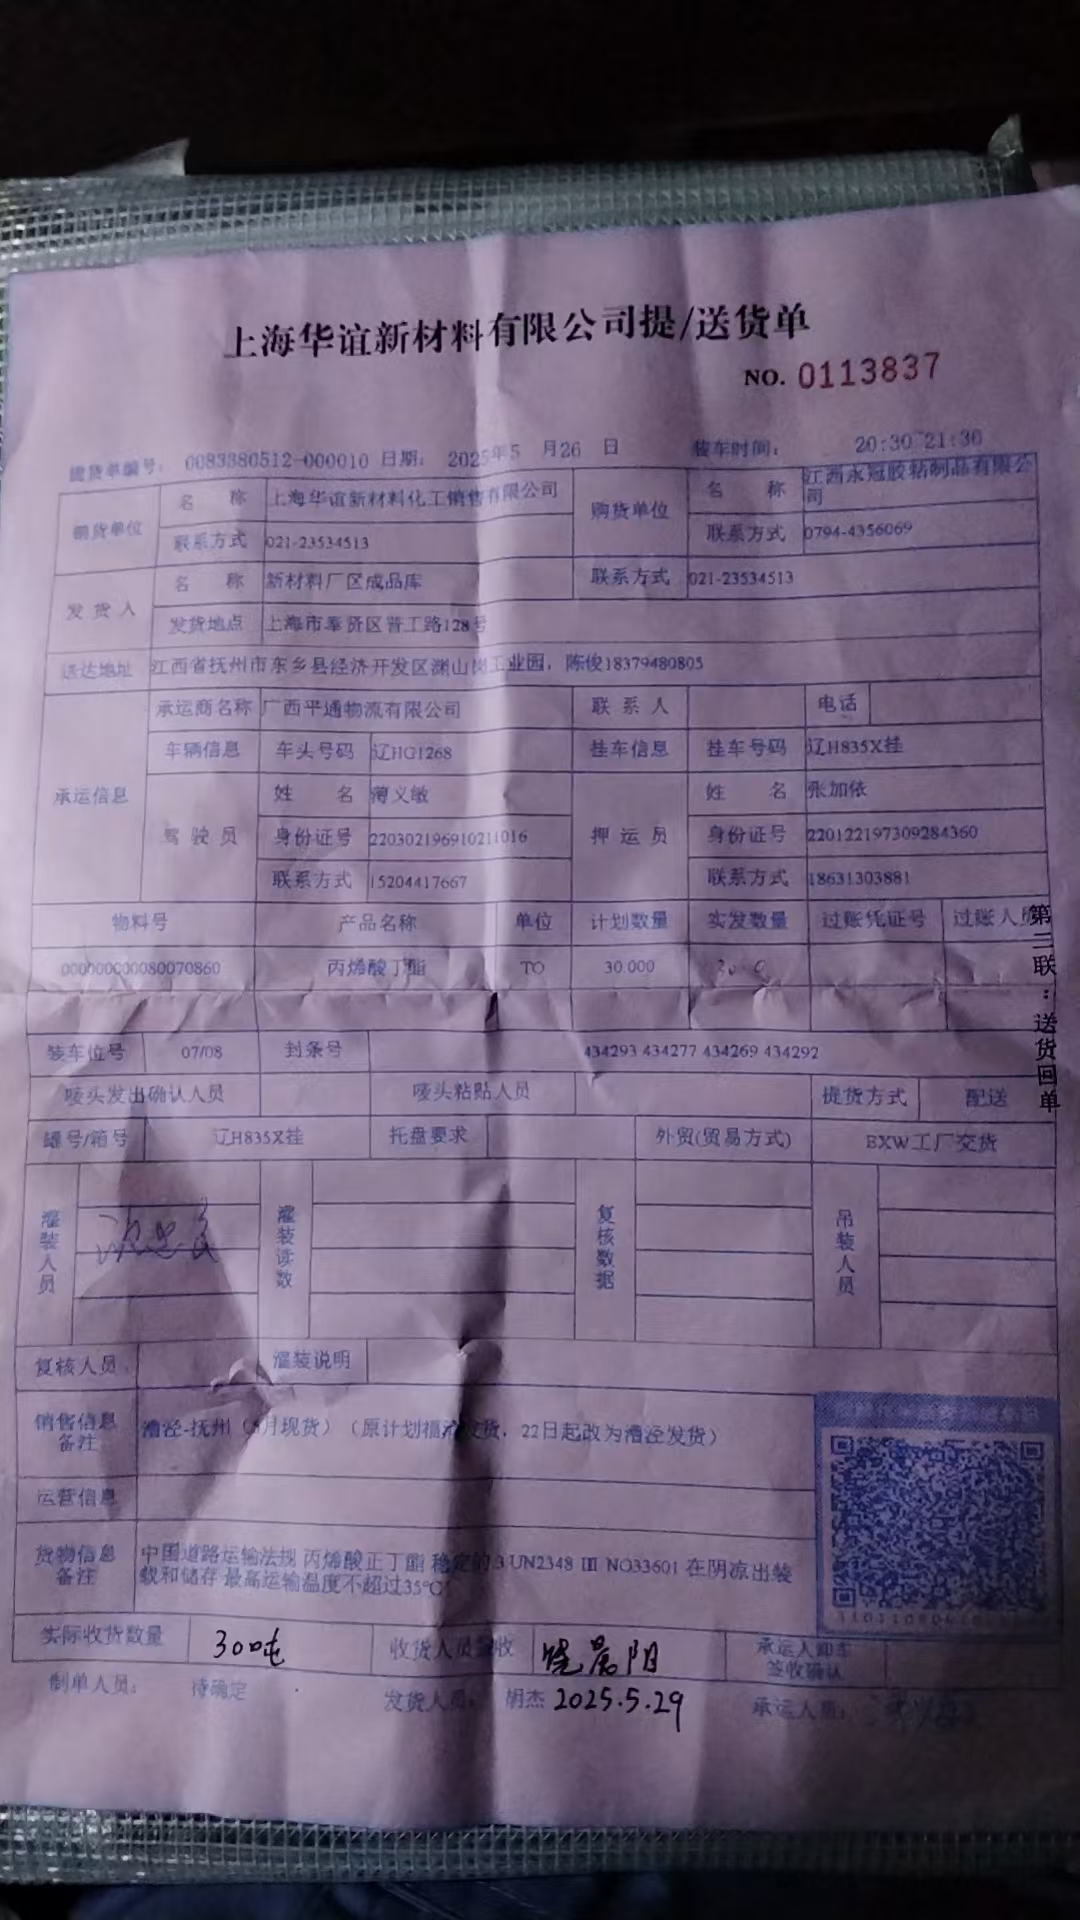 上海华谊新材料有限公司提/送货单
NO. 0113837
提货单编号: 0083380512-000010 日期: 2025年5 月26 日 装车时间: 20:30~21:30
销货单位 名 称 上海华谊新材料化工销售有限公司 购货单位 名 称 江西永冠胶粘制品有限公司
联系方式 021-23534513 联系方式 0794-4356069
发货人 名 称 新材料厂区成品库 联系方式 021-23534513
发货地点 上海市奉贤区普工路128号
送达地址 江西省抚州市东乡县经济开发区渊山岗工业园，陈俊18379480805
承运信息 承运商名称 广西平通物流有限公司 联系人 电话
车辆信息 车头号码 辽HG1268 挂车信息 挂车号码 辽H835X挂
驾驶员 姓 名 薄义敏 押运员 姓 名 张加依
身份证号 220302196910211016 身份证号 220122197309284360
联系方式 15204417667 联系方式 18631303881
物料号 产品名称 单位 计划数量 实发数量 过账凭证号 过账人员
000000000080070860 丙烯酸丁酯 TO 30.000
装车位号 07/08 封条号 434293 434277 434269 434292
唛头发出确认人员 唛头粘贴人员 提货方式 配送
罐号/箱号 辽H835X挂 托盘要求 外贸(贸易方式) EXW工厂交货
灌装人员 灌装读数 复核数据 吊装人员
复核人员 灌装说明
销售信息备注 漕泾-抚州（月现货）（原计划福发货，22日起改为漕泾发货）
运营信息
货物信息备注 中国道路运输法规 丙烯酸正丁酯 稳定的 3 UN2348 III NO33601 在阴凉出装
载和储存 最高运输温度不超过35℃
实际收货数量 300吨 收货人员签收 饶晨阳 承运人卸车签收确认
制单人员: 待确定 发货人员: 胡杰 2025.5.29 承运人员:
第三联：送货回单